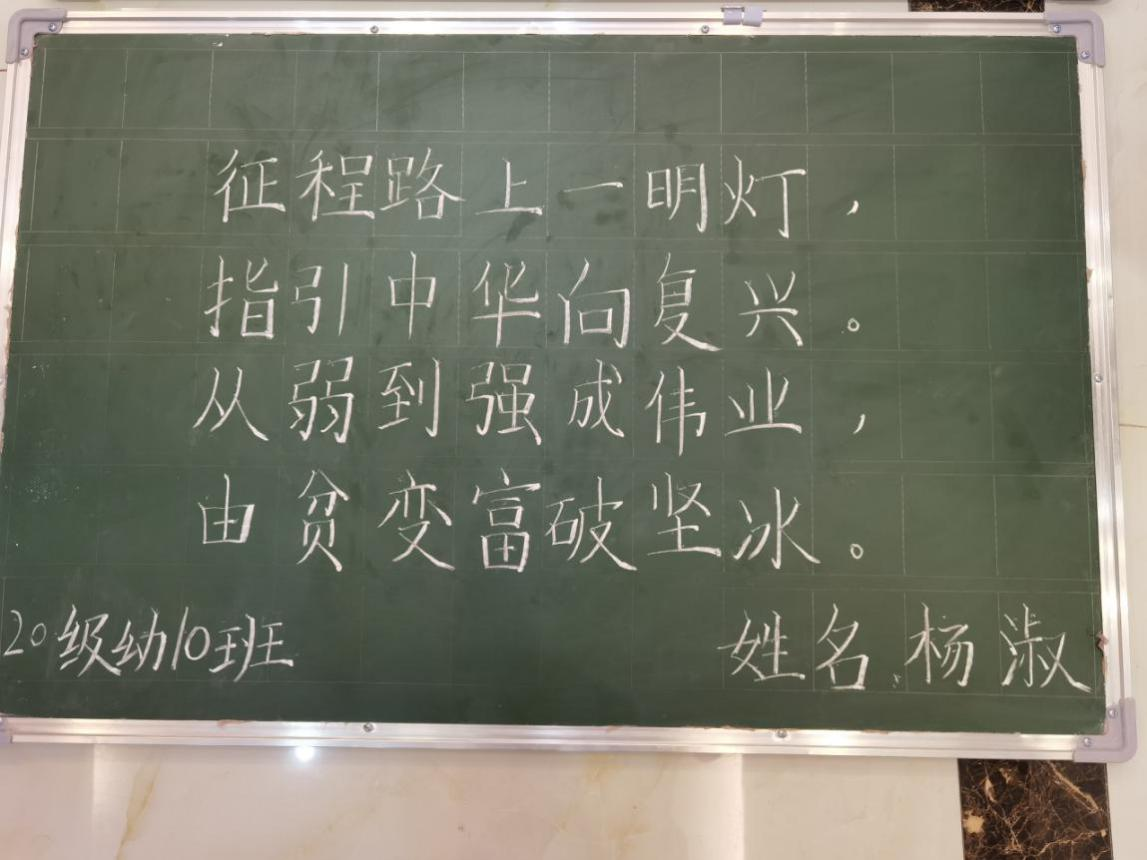 征程路上一明灯，
指引中华向复兴。
从弱到强成伟业，
由贫变富破坚冰。
20级幼10班 姓名:杨淑